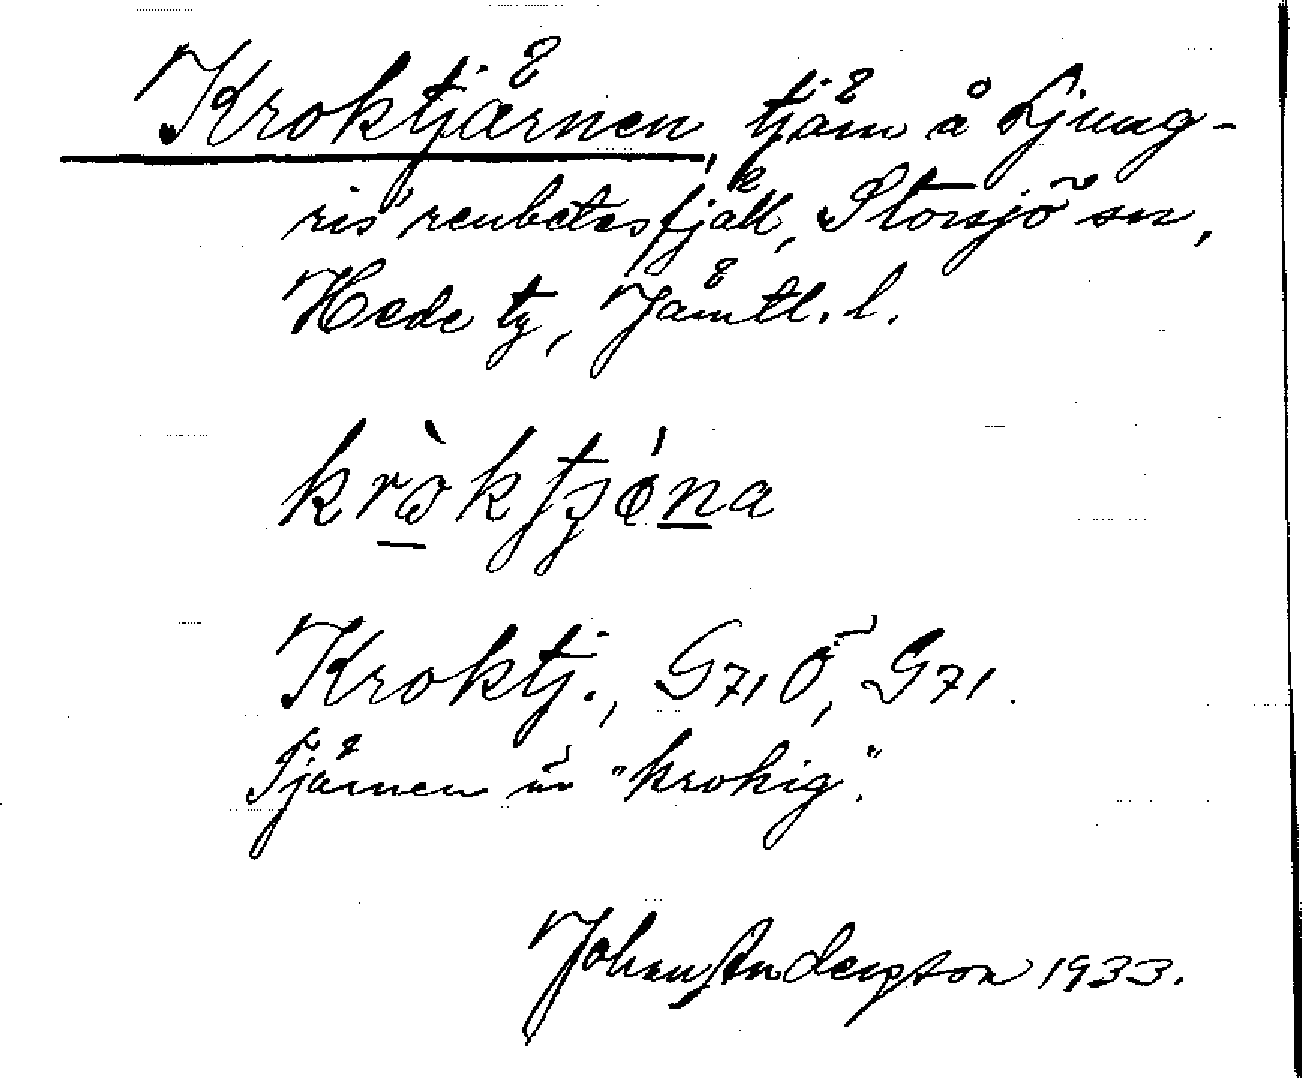 Kroktjärnen, tjärn å Ljung-
ris renbetesfjäll, Storsjö sn,
Hede tg, Jämtl. l.
kròktjǿna
Kroktj., G71Ö, G71.
Tjärnen är "krokig".
Johan Anderson 1933.